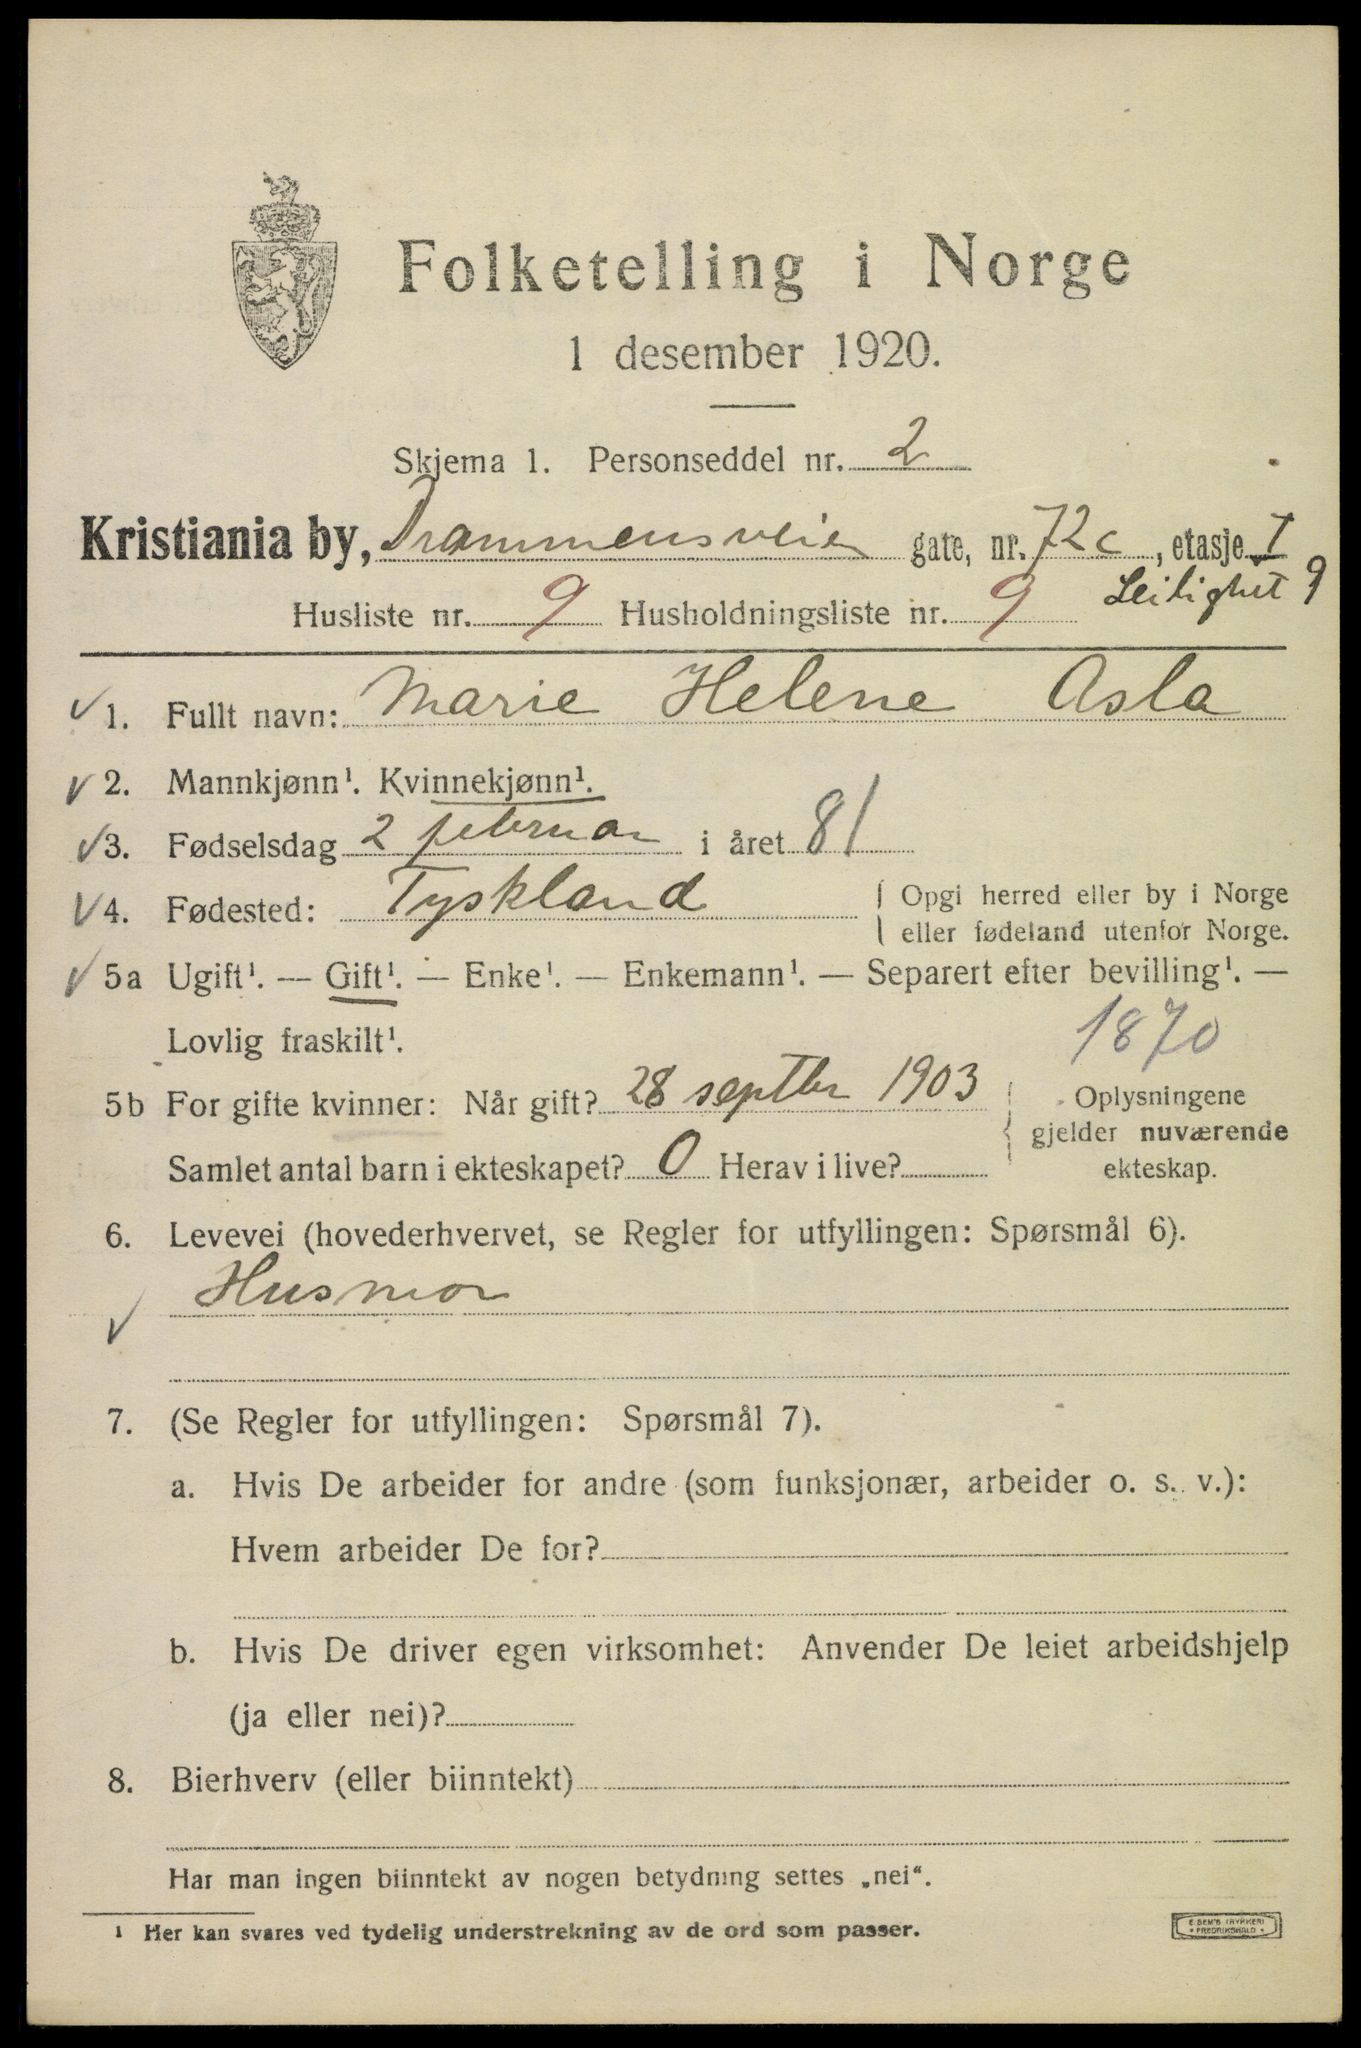 Folketelling i Norge
1 desember 1920.
Skjema 1. Personseddel nr. 2
Kristiania by, Drammensveien gate, nr. 72c, etasje I
Husliste nr. 9 Husholdningsliste nr. 9 Leilighet 9
1. Fullt navn: Marie Helene Asla
2. Mannkjønn¹. Kvinnekjønn¹.
3. Fødselsdag 2 februar i året 81
4. Fødested: Tyskland { Opgi herred eller by i Norge
eller fødeland utenfor Norge.
5a Ugift¹. — Gift¹. — Enke¹. — Enkemann¹. — Separert efter bevilling¹. —
Lovlig fraskilt¹. 1870
5b For gifte kvinner: Når gift? 28 septbr 1903 { Oplysningene
gjelder nuværende
Samlet antal barn i ekteskapet? 0 Herav i live? ekteskap.
6. Levevei (hovederhvervet, se Regler for utfyllingen: Spørsmål 6).
Husmor
7. (Se Regler for utfyllingen: Spørsmål 7).
a. Hvis De arbeider for andre (som funksjonær, arbeider o. s. v.):
Hvem arbeider De for?
b. Hvis De driver egen virksomhet: Anvender De leiet arbeidshjelp
(ja eller nei)?
8. Bierhverv (eller biinntekt)
Har man ingen biinntekt av nogen betydning settes „nei“.
¹ Her kan svares ved tydelig understrekning av de ord som passer.
E SEM'S TRYKKERI
• FREDRIKSHALD •